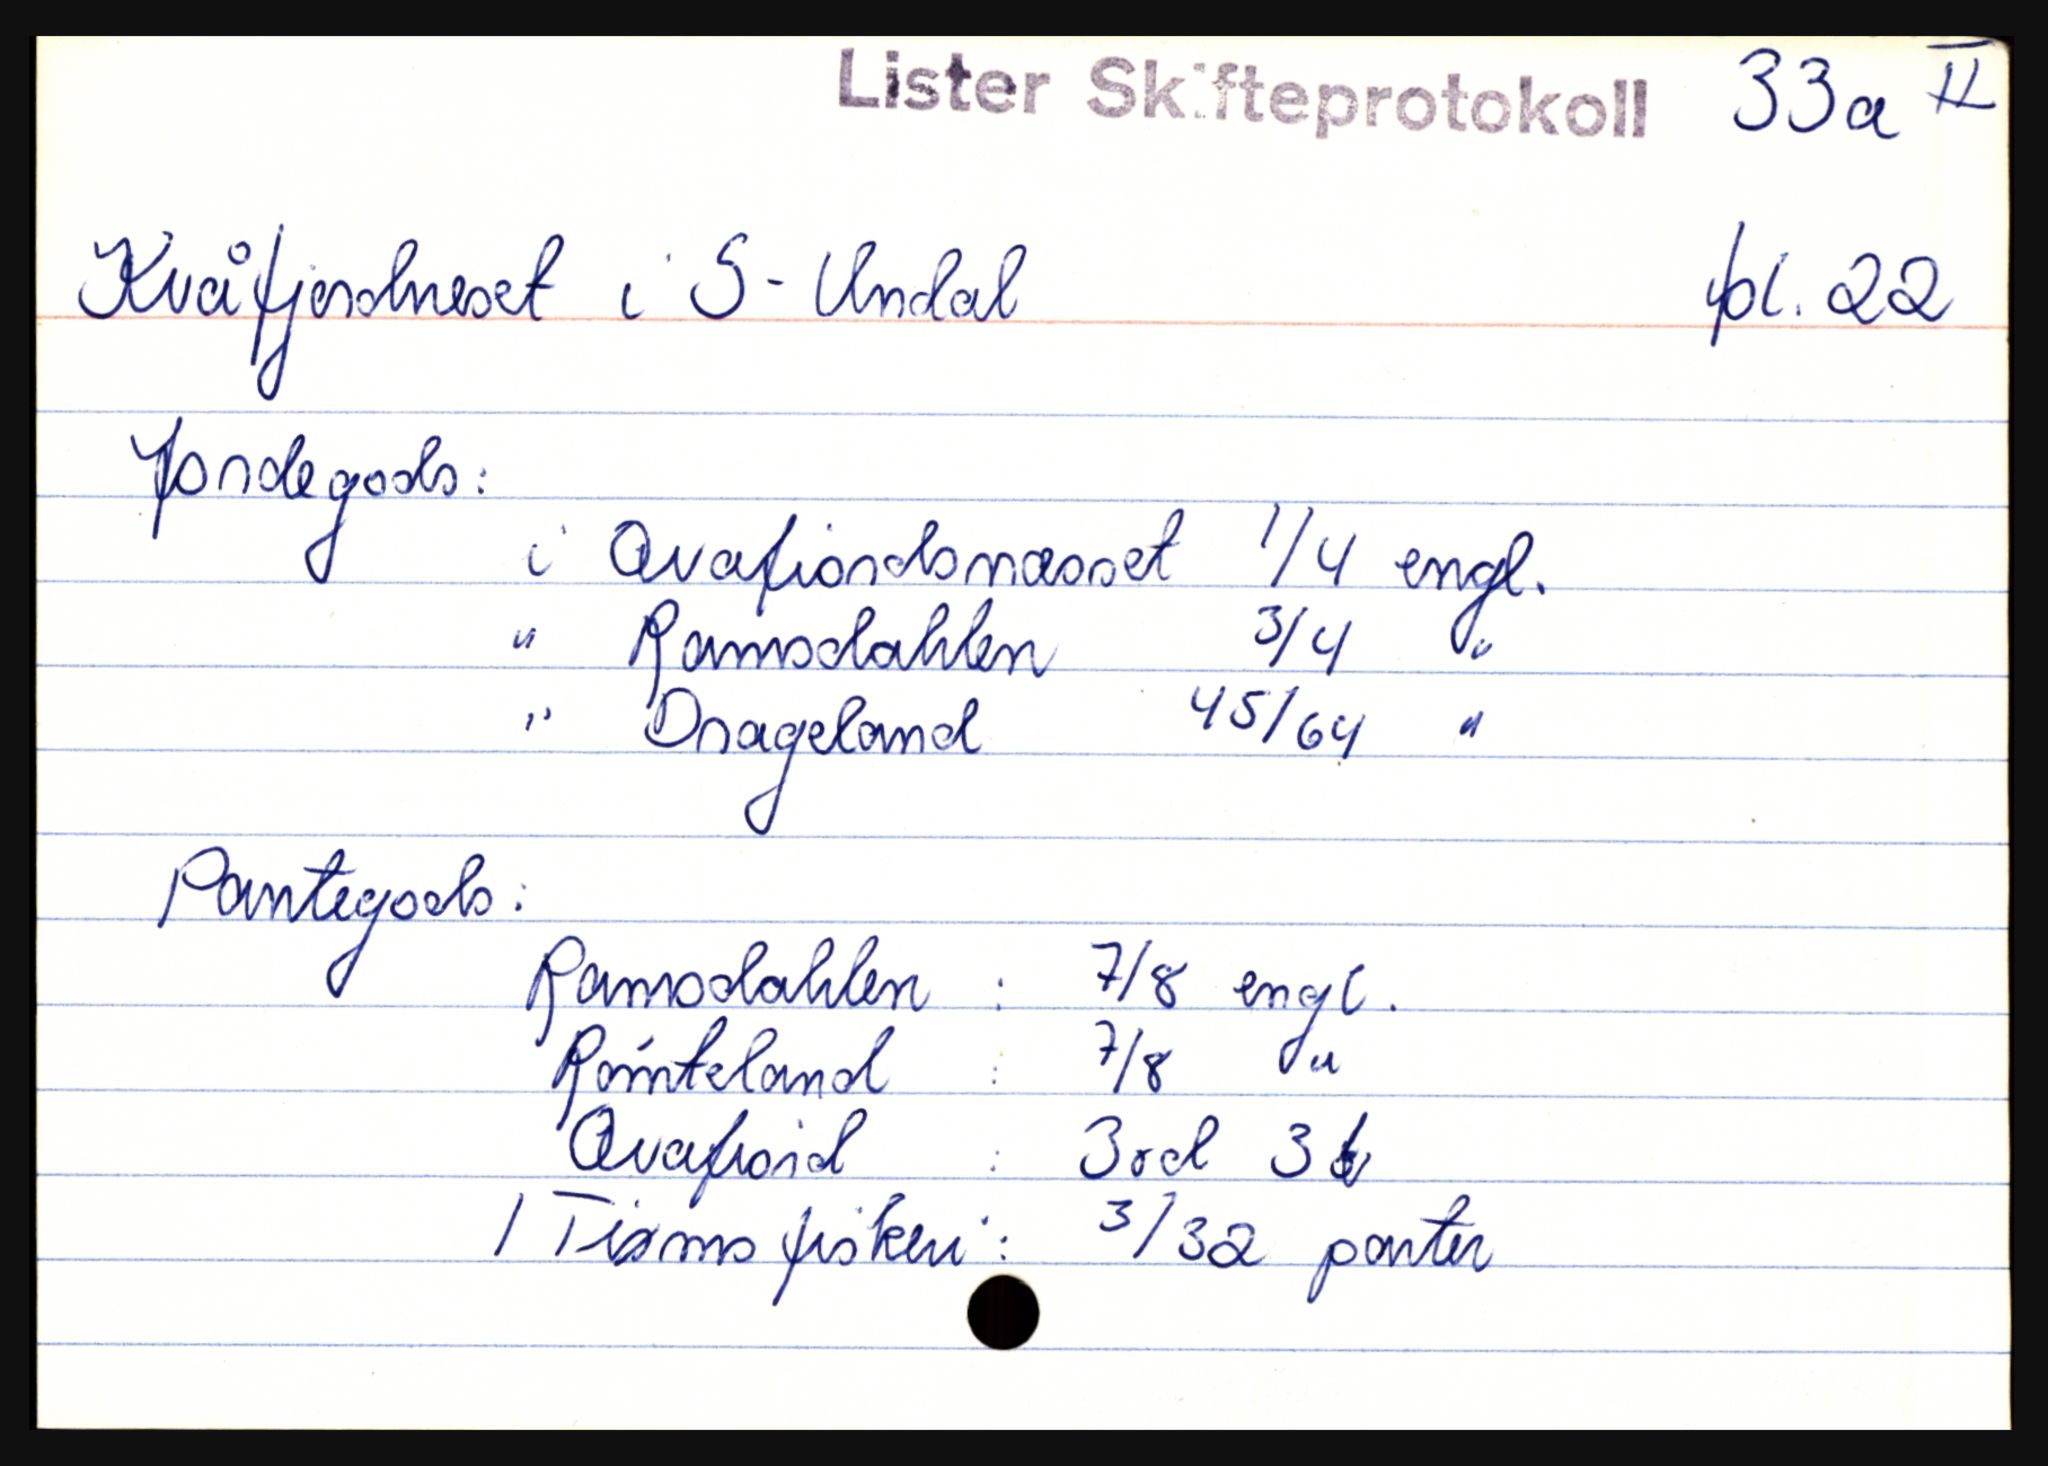 Lister Skifteprotokoll 33a II
Kvåfjordneset i S- Undal pl. 22
Jordegods:
i Qvafiordsnæsset 1/4 engl.
" Ramsdahlen 3/4 "
" Drageland 45/64 "
Pantegods:
Ramsdahlen : 7/8 engl.
: 7/8 "
Qvafiord : 3rd 3
fiskeri : 3/32 parter